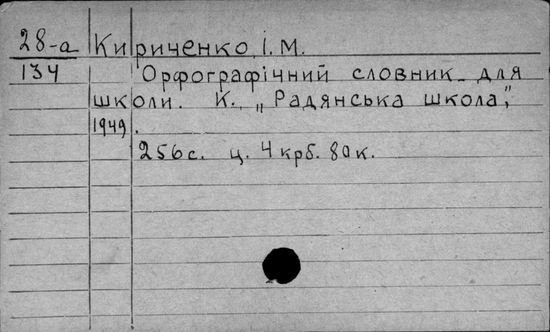 28-а Кириченко, І. М.
134 Орфографічний словник для
школи. К., „Радянська школа",
1949.
256с. ц. 4 крб. 80к.